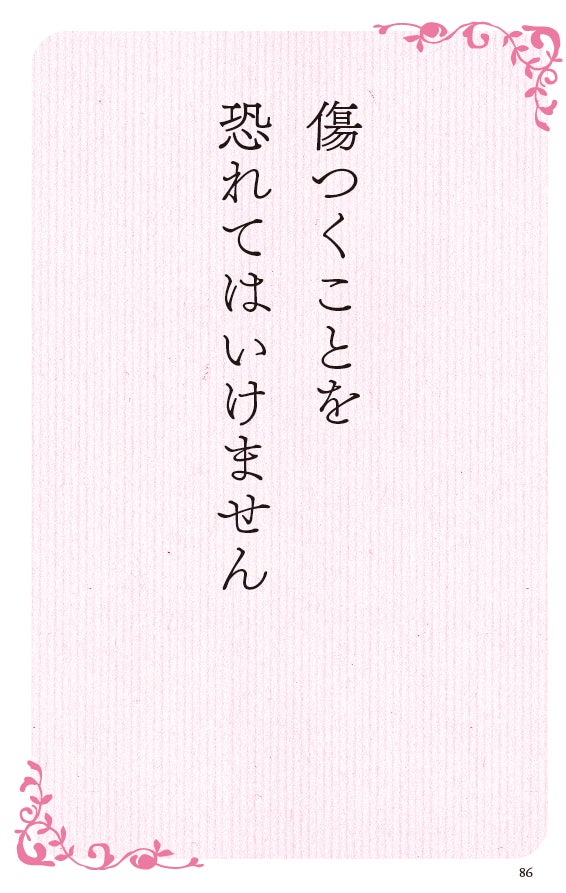 傷つくことを
恐れてはいけません
86